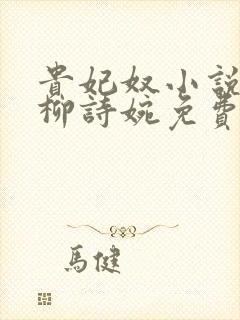 貴妃奴小說
柳詩婉免費
馬健